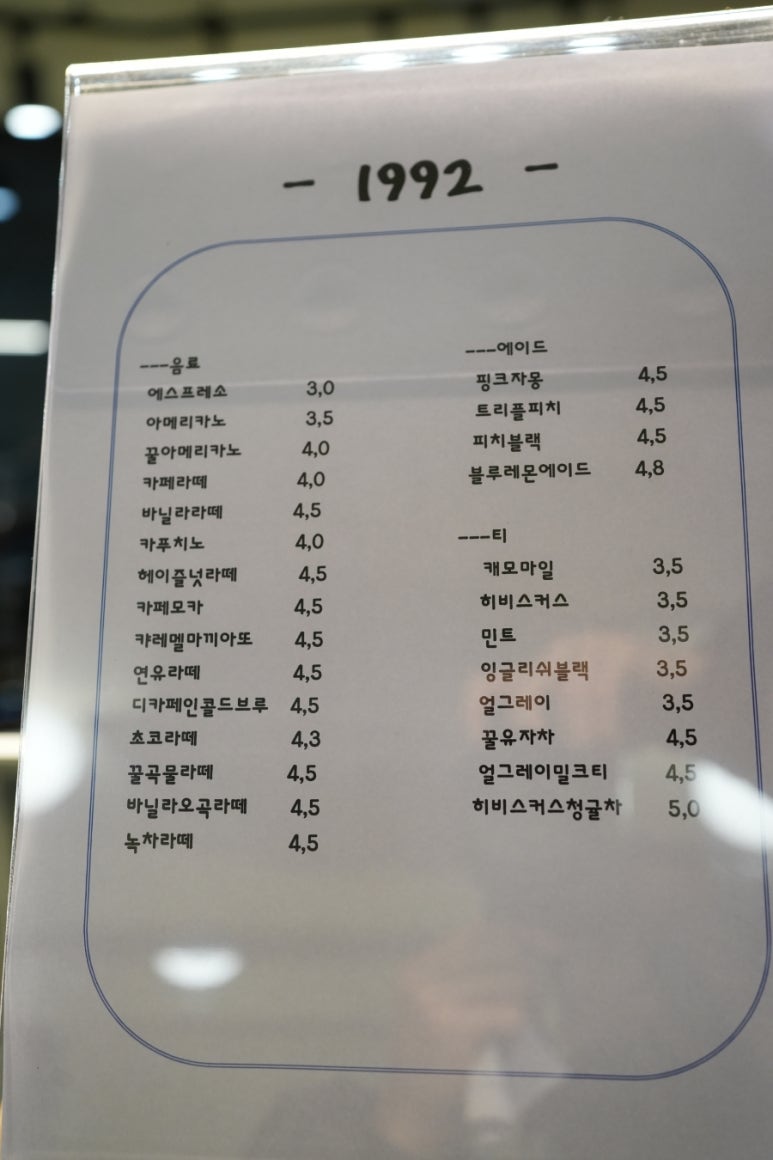 - 1992 -
---음료
에스프레소 3,0
아메리카노 3,5
꿀아메리카노 4,0
카페라떼 4,0
바닐라라떼 4,5
카푸치노 4,0
헤이즐넛라떼 4,5
카페모카 4,5
캬레멜마끼아또 4,5
연유라떼 4,5
디카페인콜드브루 4,5
초코라떼 4,3
꿀곡물라떼 4,5
바닐라오곡라떼 4,5
녹차라떼 4,5
---에이드
핑크자몽 4,5
트리플피치 4,5
피치블랙 4,5
블루레몬에이드 4,8
---티
캐모마일 3,5
히비스커스 3,5
민트 3,5
잉글리쉬블랙 3,5
얼그레이 3,5
꿀유자차 4,5
얼그레이밀크티 4,5
히비스커스청귤차 5,0